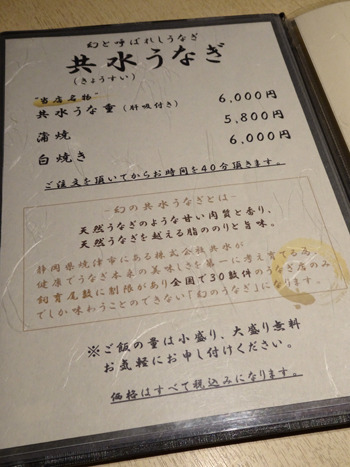 幻と呼ばれしうなぎ
共水うなぎ
(きょうすい)
"当店名物"
共水うな重(肝吸付き) 6,000円
蒲焼 5,800円
白焼き 6,000円
ご注文を頂いてからお時間を40分頂きます。
-幻の共水うなぎとは-
天然うなぎのような甘い肉質と香り、
天然うなぎを越える脂ののりと旨味。
静岡県焼津市にある株式会社共水が、
健康でうなぎ本来の美しさを第一に考え育てる為、
飼育尾数に制限があり全国で30数件のうなぎ店のみ
でしか味わうことのできない「幻のうなぎ」になります。
※ご飯の量は小盛り、大盛り無料
お気軽にお申し付けください。
価格はすべて税込みになります。